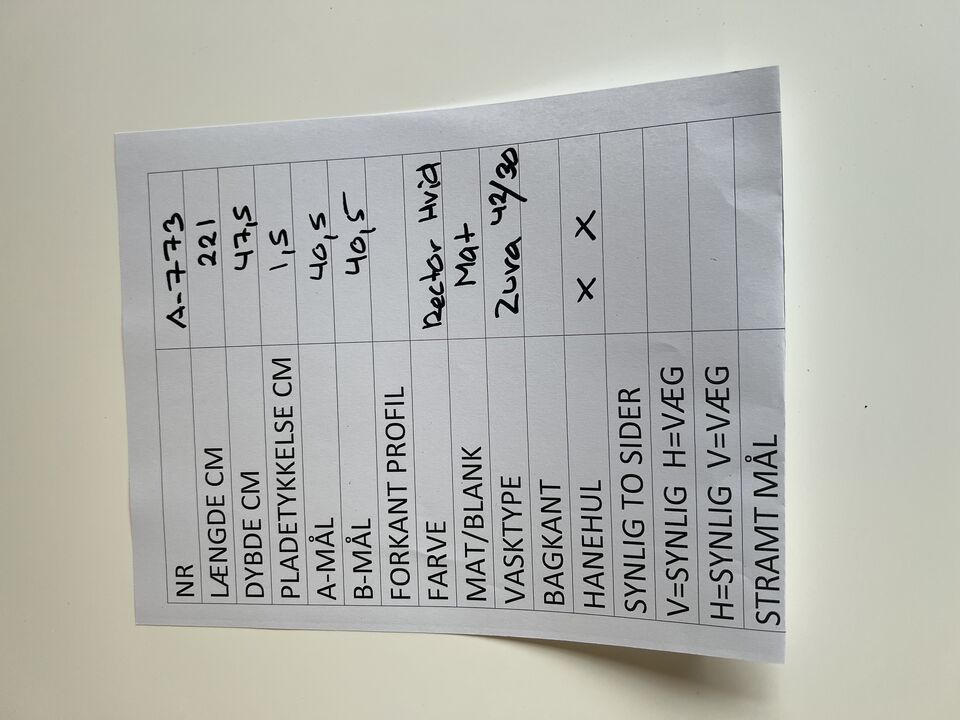 NR A-773
LÆNGDE CM 221
DYBDE CM 47,5
PLADETYKKELSE CM 1,5
A-MÅL 40,5
B-MÅL 40,5
FORKANT PROFIL
FARVE Rector Hvid
MAT/BLANK Mat
VASKTYPE Zura 42/30
BAGKANT
HANEHUL X X
SYNLIG TO SIDER
V=SYNLIG H=VÆG
H=SYNLIG V=VÆG
STRAMT MÅL